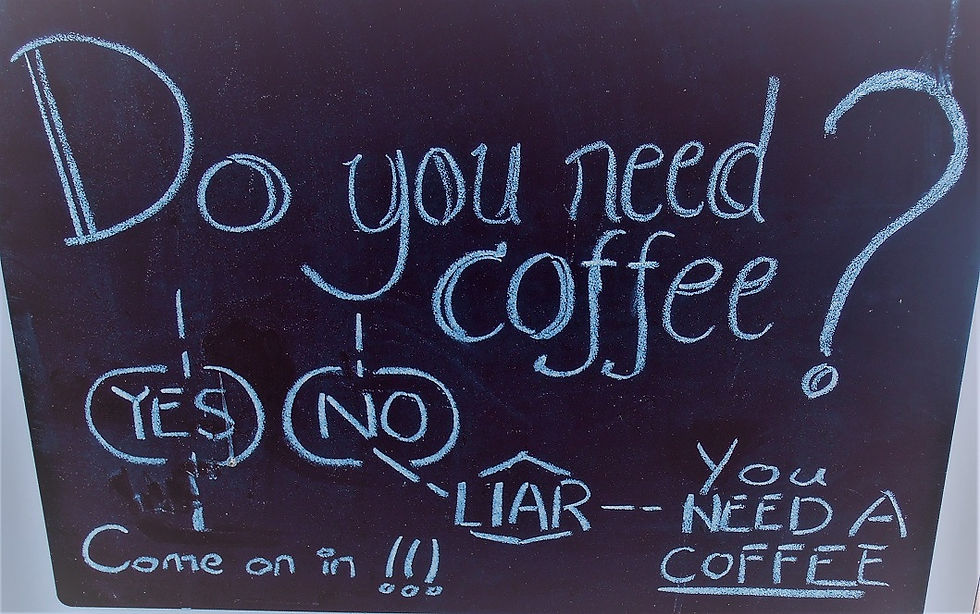 Do you need
coffee?
YES NO
LIAR -- You
NEED A
COFFEE
Come on in !!!